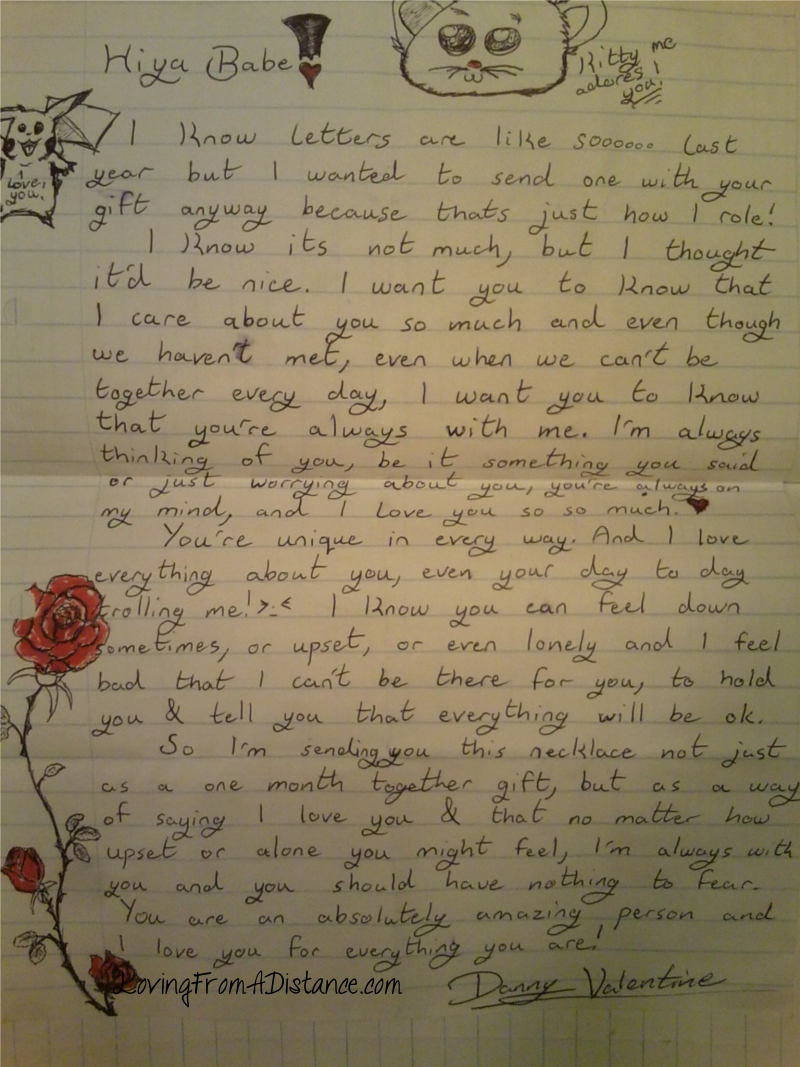 Hiya Babe
Kitty me
adores !
you!
I
love
you.
I know letters are like soooooo last
year but I wanted to send one with your
gift anyway because thats just how I role!
I know its not much, but I thought
it'd be nice. I want you to know that
I care about you so much and even though
we haven't met, even when we can't be
together every day, I want you to know
that you're always with me. I'm always
thinking of you, be it something you said
or just worrying about you, you're always on
my mind, and I love you so so much. ♥
You're unique in every way. And I love
everything about you, even your day to day
trolling me! >.< I know you can feel down
sometimes, or upset, or even lonely and I feel
bad that I can't be there for you, to hold
you & tell you that everything will be ok.
So I'm sending you this necklace not just
as a one month together gift, but as a way
of saying I love you & that no matter how
upset or alone you might feel, I'm always with
you and you should have nothing to fear.
You are an absolutely amazing person and
I love you for everything you are!
Danny Valentine
LovingFromADistance.com